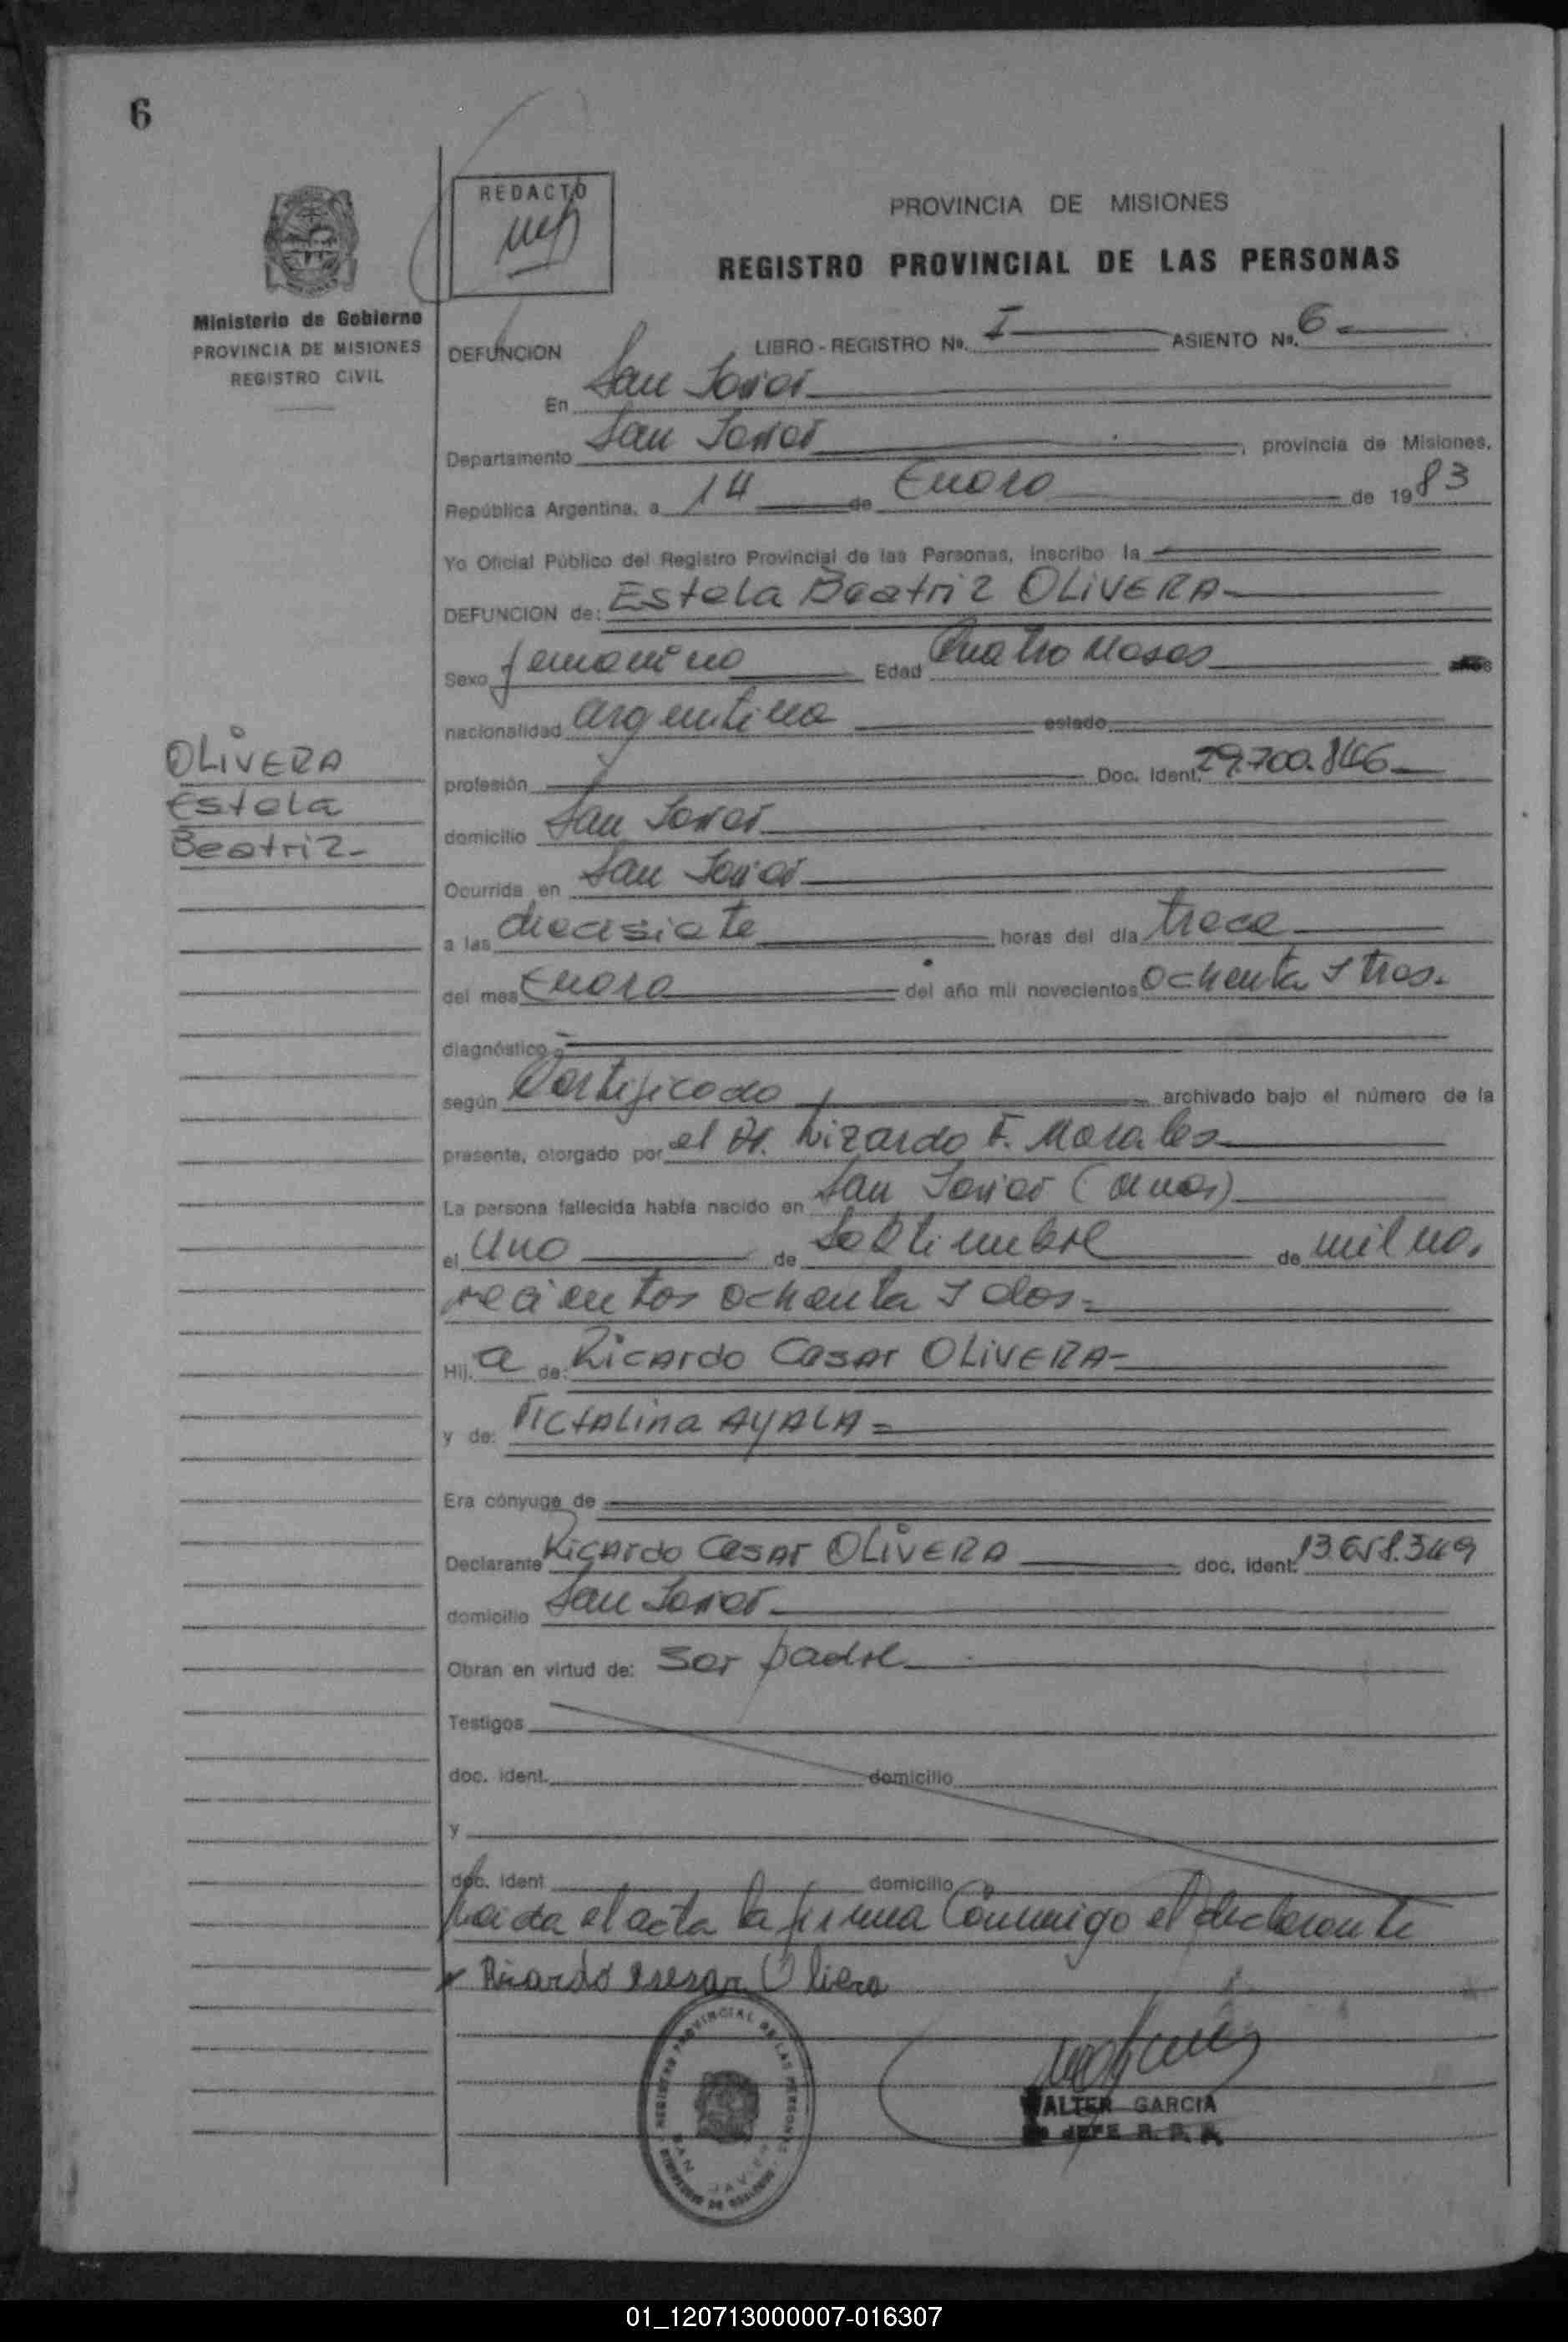 6
REDACTÓ
PROVINCIA DE MISIONES
REGISTRO PROVINCIAL DE LAS PERSONAS
Ministerio de Gobierno
PROVINCIA DE MISIONES
REGISTRO CIVIL
DEFUNCION LIBRO - REGISTRO Nº. I ASIENTO Nº. 6
En San Javier
Departamento San Javier, provincia de Misiones,
República Argentina, a 14 de Enero de 1983
Yo Oficial Público del Registro Provincial de las Personas, inscribo la
DEFUNCION de: Estela Beatriz OLIVERA
Sexo femenino Edad Cuatro Meses
nacionalidad argentina estado
OLIVERA
Estela
Beatriz
profesión Doc. Ident. 29.700.846
domicilio San Javier
Ocurrida en San Javier
a las diecisiete horas del día trece
del mes Enero del año mil novecientos ochenta y tres.
diagnóstico
según Certificado archivado bajo el número de la
presente, otorgado por el Dr. Lizardo F. Morales
La persona fallecida había nacido en San Javier (Mnes)
el Uno de Septiembre de mil no,
vecientos ochenta y dos
Hij. a de: Ricardo Cesar OLIVERA
y de: AYALA
Era cónyuge de
Declarante Ricardo Cesar OLIVERA doc. ident. 13.658.349
domicilio San Javier
Obran en virtud de: ser padre
Testigos
doc. ident. domicilio
y
doc. ident domicilio
Leida el acta la firma Conmigo el declarante
Ricardo Olivera
REGISTRO PROVINCIAL DE LAS PERSONAS
SAN JAVIER
WALTER GARCIA
JEFE R. P. P.
01_120713000007-016307